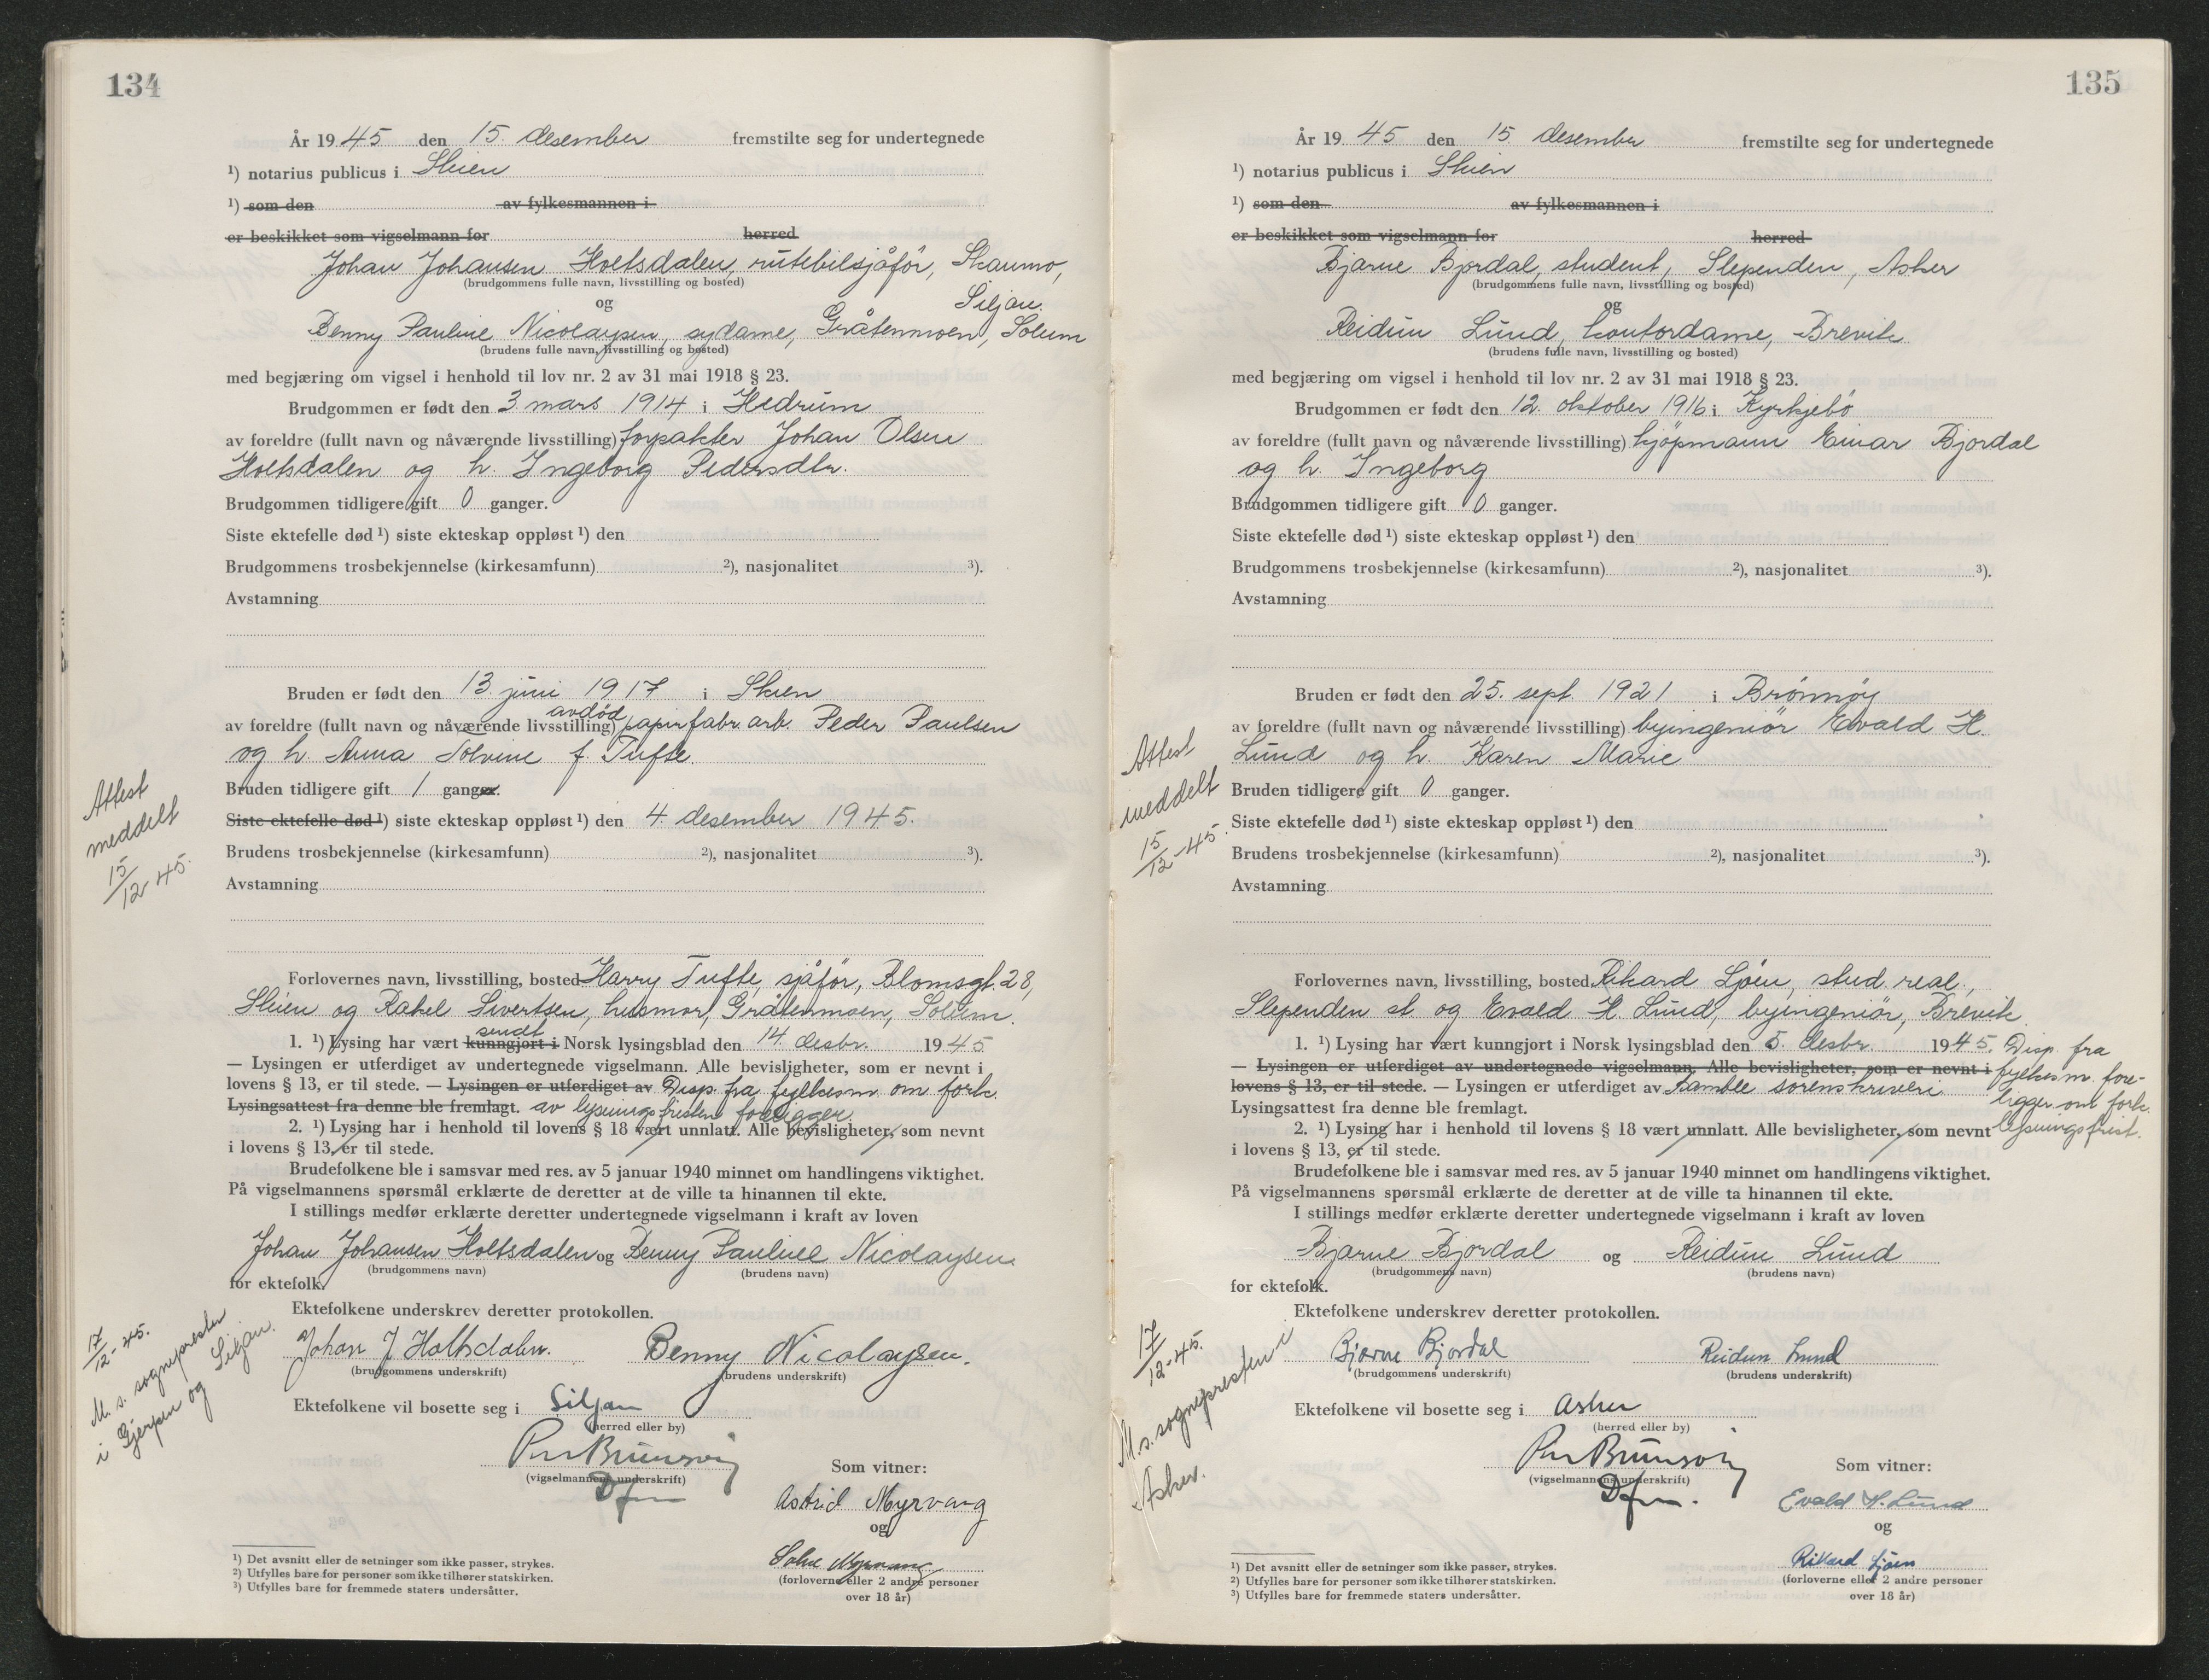 134
År 1945 den 15. desember fremstilte seg for undertegnede
¹) notarius publicus i Skien
¹) som den av fylkesmannen i
er beskikket som vigselmann for herred
Johan Johansen Holtsdalen, rutebilsjåfør, Skaumo,
(brudgommens fulle navn, livsstilling og bosted)
Siljan.
og
Benny Pauline Nicolaysen, sydame, Gråtenmoen, Solum
(brudens fulle navn, livsstilling og bosted)
med begjæring om vigsel i henhold til lov nr. 2 av 31 mai 1918 § 23.
Brudgommen er født den 3 mars 1914 i Hedrum
av foreldre (fullt navn og nåværende livsstilling) forpakter Johan Olsen
Holtsdalen og h. Ingeborg Pedersdtr.
Brudgommen tidligere gift 0 ganger.
Siste ektefelle død ¹) siste ekteskap oppløst ¹) den
Brudgommens trosbekjennelse (kirkesamfunn) ²), nasjonalitet ³).
Avstamning
Bruden er født den 13. juni 1917 i Skien
avdød
av foreldre (fullt navn og nåværende livsstilling) papirfabr.arb. Peder Paulsen
og h. Anna Tolvine f. Tufte.
Bruden tidligere gift 1 ganger.
Siste ektefelle død ¹) siste ekteskap oppløst ¹) den 4. desember 1945.
Brudens trosbekjennelse (kirkesamfunn) ²), nasjonalitet ³).
Avstamning
Attest
meddelt
15/12-45.
Forlovernes navn, livsstilling, bosted Harry Tufte, sjåfør, Blomsgt. 28,
Skien og Rakel Sivertsen, husmor, Gråtenmoen, Solum.
sendt
1. ¹) Lysing har vært kunngjort i Norsk lysingsblad den 14. desbr. 1945
— Lysingen er utferdiget av undertegnede vigselmann. Alle bevisligheter, som er nevnt i
lovens § 13, er til stede. — Lysingen er utferdiget av Disp. fra fylkesm. om fork.
Lysingsattest fra denne ble fremlagt. av lysingsfristen foreligger.
2. ¹) Lysing har i henhold til lovens § 18 vært unnlatt. Alle bevisligheter, som nevnt
i lovens § 13, er til stede.
Brudefolkene ble i samsvar med res. av 5 januar 1940 minnet om handlingens viktighet.
På vigselmannens spørsmål erklærte de deretter at de ville ta hinannen til ekte.
I stillings medfør erklærte deretter undertegnede vigselmann i kraft av loven
Johan Johansen Holtsdalen og Benny Pauline Nicolaysen
(brudgommens navn) (brudens navn)
for ektefolk.
Ektefolkene underskrev deretter protokollen.
Johan J Holtsdalen. Benny Nicolaysen.
(brudgommens underskrift) (brudens underskrift)
Ektefolkene vil bosette seg i Siljan
(herred eller by)
17/12-45.
M. s. sogneprester
i Gjerpen og Siljan.
Per Brunsvig
(vigselmannens underskrift)
Dfm
Som vitner:
Astrid Myrvang
og
Myrvang
(forloverne eller 2 andre personer
over 18 år)
¹) Det avsnitt eller de setninger som ikke passer, strykes.
²) Utfylles bare for personer som ikke tilhører statskirken.
³) Utfylles bare for fremmede staters undersåtter.
135
År 1945 den 15 desember fremstilte seg for undertegnede
¹) notarius publicus i Skien
¹) som den av fylkesmannen i
er beskikket som vigselmann for herred
Bjarne Bjordal, student, Slependen, Asker
(brudgommens fulle navn, livsstilling og bosted)
og
Reidun Lund, kontordame, Brevik
(brudens fulle navn, livsstilling og bosted)
med begjæring om vigsel i henhold til lov nr. 2 av 31 mai 1918 § 23.
Brudgommen er født den 12. oktober 1916 i Kyrkjebø
av foreldre (fullt navn og nåværende livsstilling) kjøpmann Einar Bjordal
og h. Ingeborg
Brudgommen tidligere gift 0 ganger.
Siste ektefelle død ¹) siste ekteskap oppløst ¹) den
Brudgommens trosbekjennelse (kirkesamfunn) ²), nasjonalitet ³).
Avstamning
Bruden er født den 25. sept. 1921 i Brønnøy
av foreldre (fullt navn og nåværende livsstilling) byingeniør Evald H.
Lund og h. Karen Marie
Bruden tidligere gift 0 ganger.
Siste ektefelle død ¹) siste ekteskap oppløst ¹) den
Brudens trosbekjennelse (kirkesamfunn) ²), nasjonalitet ³).
Avstamning
Attest
meddelt
15/12-45.
Forlovernes navn, livsstilling, bosted Rikard Sjøen, stud. real.,
Slependen st. og Evald H. Lund, byingeniør, Brevik.
1. ¹) Lysing har vært kunngjort i Norsk lysingsblad den 5. desbr. 1945. Disp. fra
— Lysingen er utferdiget av undertegnede vigselmann. Alle bevisligheter, som er nevnt i fylkesm. fore-
lovens § 13, er til stede. — Lysingen er utferdiget av Bamble sorenskriveri ligger om fork.
Lysingsattest fra denne ble fremlagt.
2. ¹) Lysing har i henhold til lovens § 18 vært unnlatt. Alle bevisligheter, som nevnt lysingsfrist.
i lovens § 13, er til stede.
Brudefolkene ble i samsvar med res. av 5 januar 1940 minnet om handlingens viktighet.
På vigselmannens spørsmål erklærte de deretter at de ville ta hinannen til ekte.
I stillings medfør erklærte deretter undertegnede vigselmann i kraft av loven
Bjarne Bjordal og Reidun Lund
(brudgommens navn) (brudens navn)
for ektefolk.
Ektefolkene underskrev deretter protokollen.
Bjarne Bjordal Reidun Lund
(brudgommens underskrift) (brudens underskrift)
Ektefolkene vil bosette seg i Asker
(herred eller by)
17/12-45.
M. s. sognepresten i
Asker.
Per Brunsvig
(vigselmannens underskrift)
Dfm.
Som vitner:
Evald H. Lund
og
Rikard Sjøen
(forloverne eller 2 andre personer
over 18 år)
¹) Det avsnitt eller de setninger som ikke passer, strykes.
²) Utfylles bare for personer som ikke tilhører statskirken.
³) Utfylles bare for fremmede staters undersåtter.